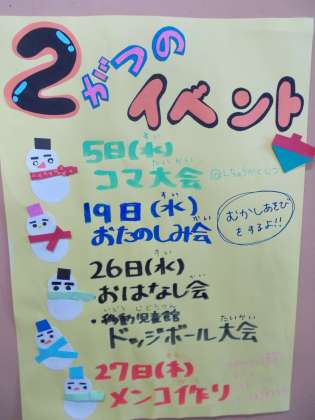 2がつの
イベント
5日(水)
すい
コマ大会
たいかい
19日(水)
すい
おたのしみ会
かい
むかしあそび
をするよ!!
26日(水)
すい
おはなし会
かい
・移動児童館
いどうじどうかん
ドッジボール大会
たいかい
27日(木)
もく
メンコ作り